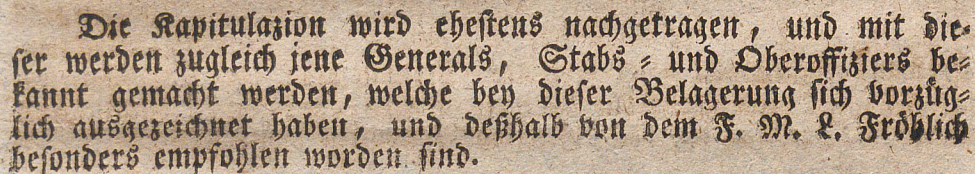 Die Kapitulazion wird ehestens nachgetragen, und mit die-
ser werden zugleich jene Generals, Stabs- und Oberoffiziers be-
kannt gemacht werden, welche bey dieser Belagerung sich vorzüg-
lich ausgezeichnet haben, und deßhalb von dem F. M. L. Fröhlich
besonders empfohlen worden sind.